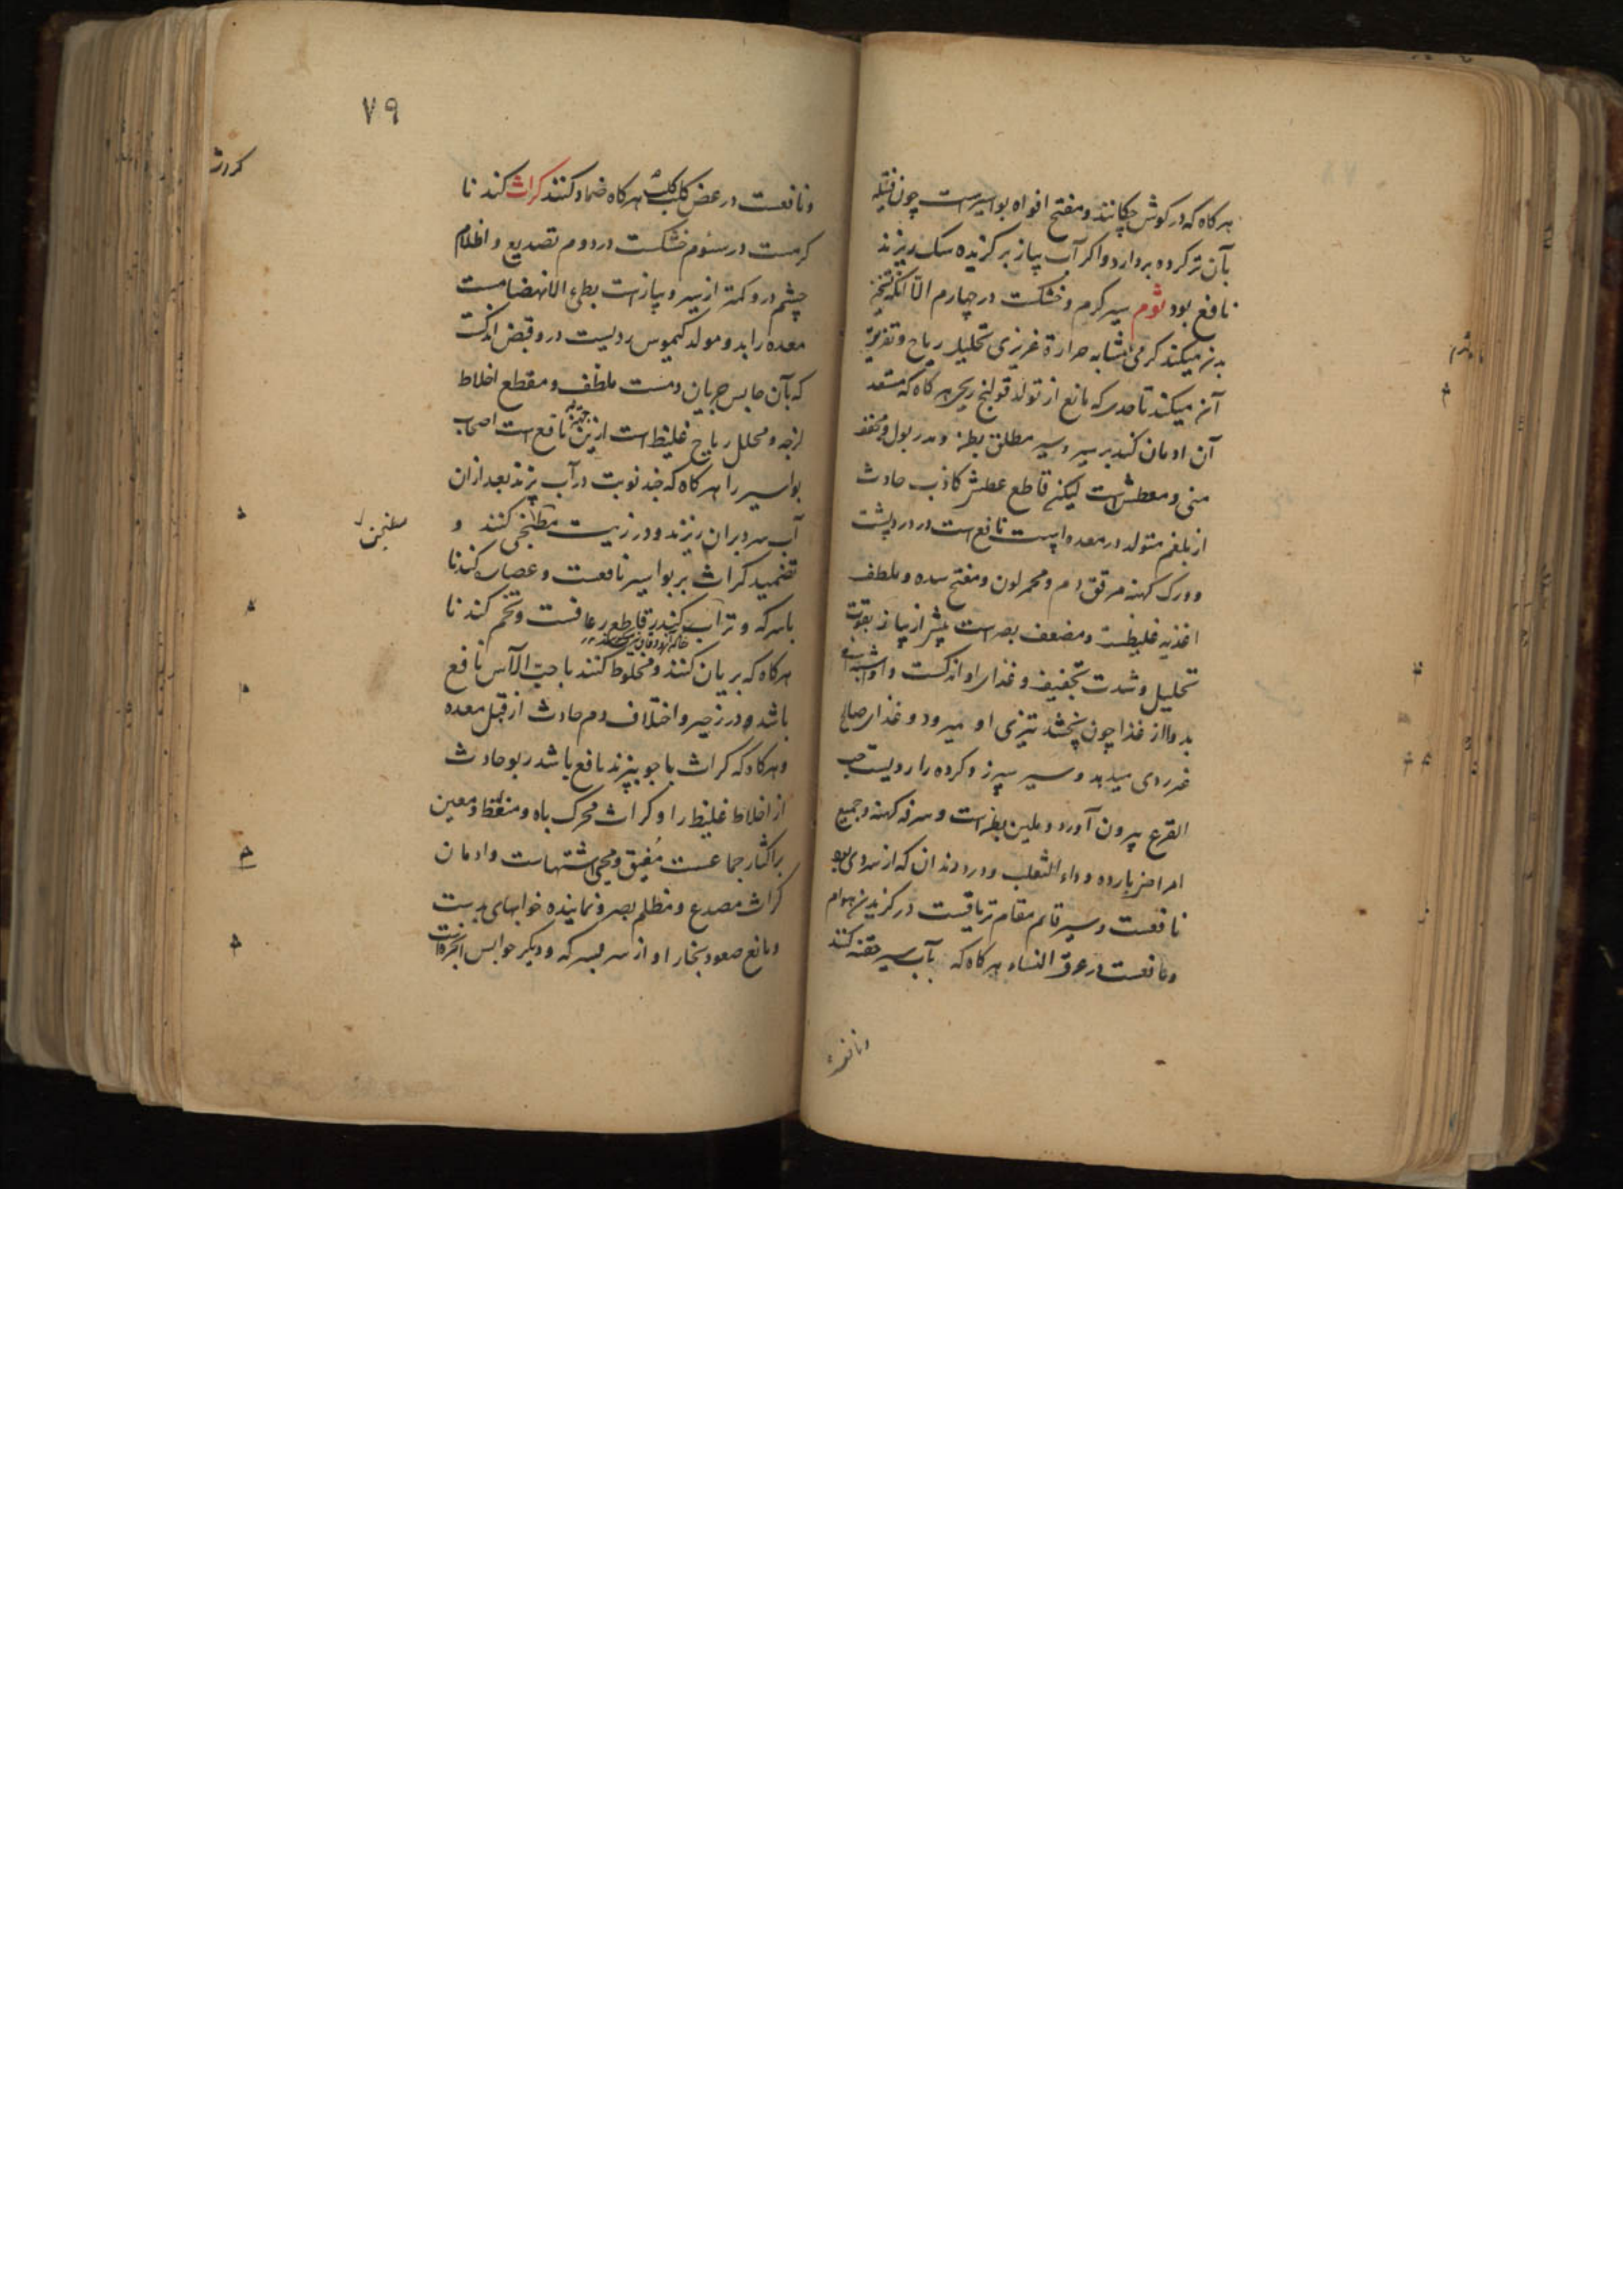 هرکاه که در کوش چکانند و مفتح افواه بواسیرست چون فتیله
بآن تر کرده بردارد و اکر آب پیاز بر کزیده سک ریزند
نافع بود ثوم سیر کرم و خشکست در چهارم الا آنکه تسخین
بدن میکند کرمی مشابه حرارة غریزی تحلیل ریاح و تفریق
آن میکند تا حدی که مانع از تولد قولنج ریحی هرکاه که مستعد
آن ادمان کند بر سیر و سیر مطلق بطن و مدر بول و مجفف
منی و معطش است لیکن قاطع عطش کاذب حادث
از بلغم متولد در معده است نافع است در درد پشت
و ورک کهنه مرقق دم و محمر لون و مفتح سده و ملطف
اغذیه غلیظست و مضعف بصر است بیشتر از پیاز بقوت
تحلیل و شدت تجفیف و غذای او اندکست و
بدوا از غذا چون پخته شد تیزی او میرود و غذای صالح
غیر ردی میدهد و سیر سپرز و کرده را ردیست حب
القرع بیرون آورد و ملین بطن است و سرفه کهنه و جمیع
امراض بارده و داء الثعلب و درد دندان که از سردی بود
نافعست و سیر قایم مقام تریاقیست در کزیدن هوام
و نافعست در عرق النساء هرکاه که بآب سیر حقنه کنند
و نافعست
۷۹
و نافعست در عض کلب کلب هرکاه ضماد کنند کراث کندنا
کرمست در سئوم خشکست در دوم تصدیع و اظلام
چشم درو کمتر از سیر و پیازست بطیء الانهضامست
معده را بد و مولد کیموس ردیست درو قبض اندکست
که بآن حابس جریان دمست ملطف و مقطع اخلاط
لزجه و محلل ریاح غلیظ است ازین جهة نافع است اصحاب
بواسیر را هرکاه که چند نوبت در آب پزند بعد ازان
آب سرد بران ریزند و در زیت مطجن کنند و
تضمید کراث بر بواسیر نافعست و عصاره کندنا
با سرکه و تراب کندر قاطع رعافست و تخم کندنا
هرکاه که بریان کنند و مخلوط کنند با حب الآس نافع
باشد در زحیر و اختلاف دم حادث از قبل معده
و هرکاه که کراث با جو بپزند نافع باشد ربو حادث
از اخلاط غلیظ را و کراث محرک باه و منعظ و معین
بر اکثار جماعست مفیق و محیی اشتهاست و ادمان
کراث مصدع و مظلم بصر و نماینده خوابهای بدست
و مانع صعود بخار او از سر بسرکه و دیکر حوابس ابخره است